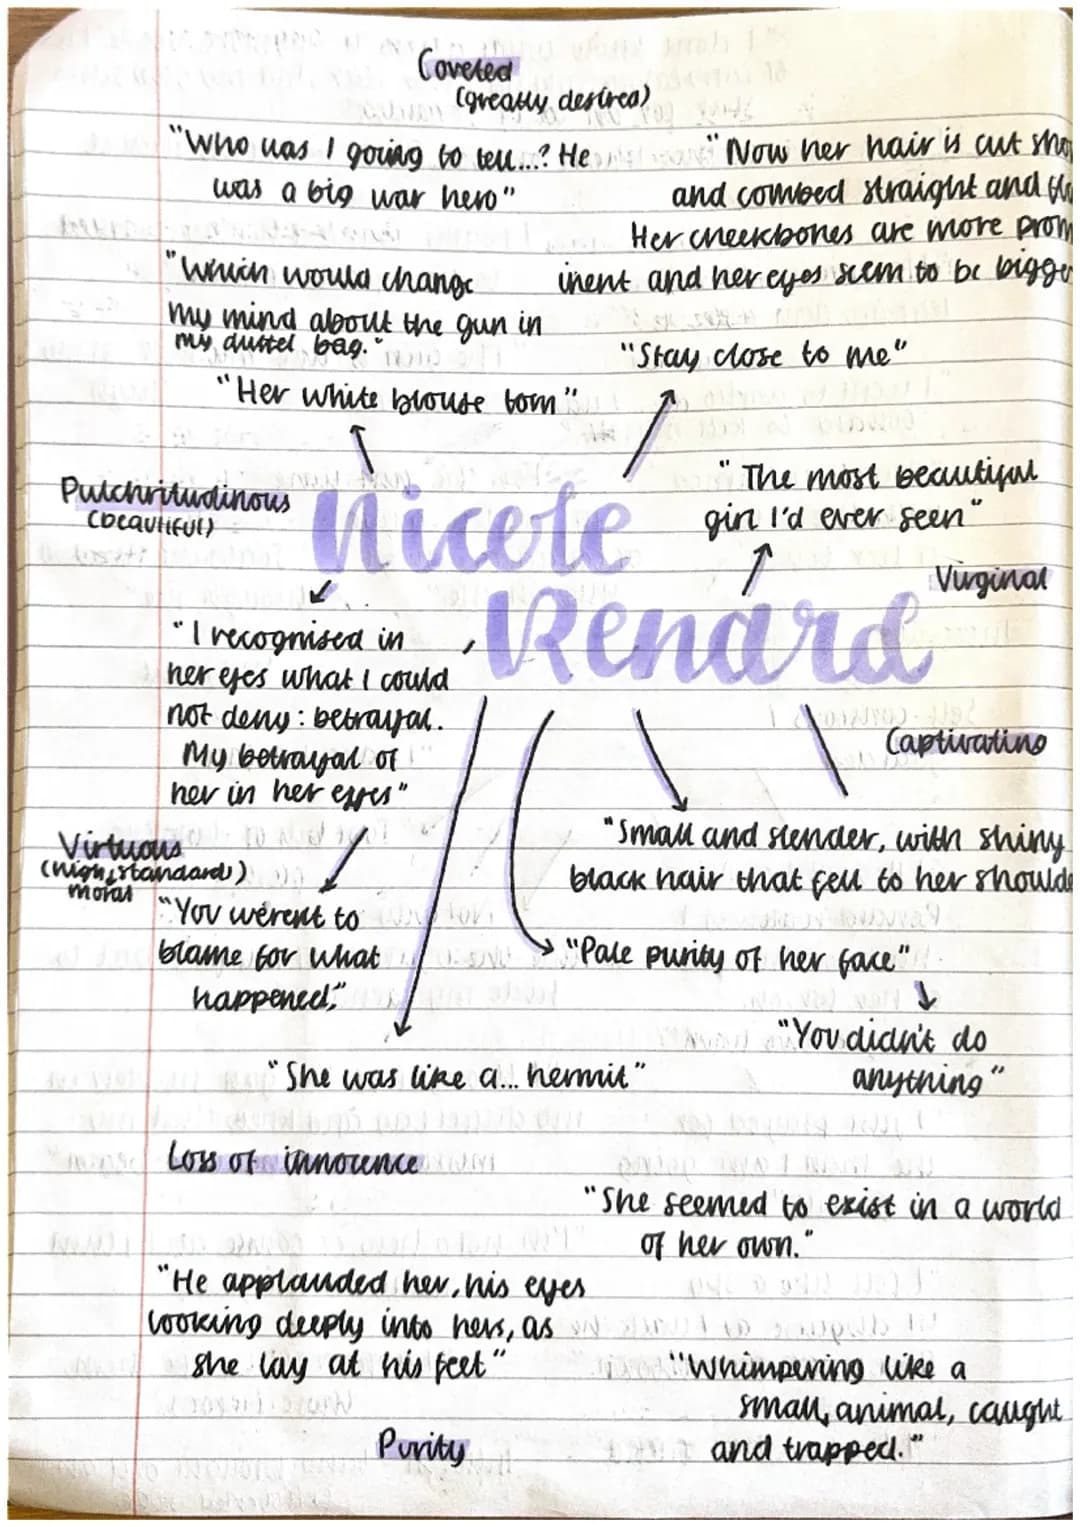 Coveted
(greatly desired)
"Who was I going to tell...? He
was a big war hero"
"Now her hair is cut
and combed straight and
Her cheekbones are more prom
inent and her eyes seem to be
"Which would change
my mind about the gun in
my duffel bag."
"Stay close to me"
"Her white blouse torn"
"The most beautiful
girl I'd ever seen"
Pulchritudinous
(beautiful)
Nicole
Renard
Virginal
"I recognised in
her eyes what I could
not deny: betrayal.
My betrayal of
her in her eyes"
Captivating
"Small and slender, with shiny
black hair that fell to her
Virtuous
(high standard)
moral
"You werent to
blame for what
happened."
"Pale purity of her face"
"You didn't do
anything"
"She was like a... hermit"
Loss of innocence
"She seemed to exist in a world
of her own."
"He applauded her, his eyes
looking deeply into hers, as
she lay at his feet"
"Whimpering like a
small, animal, caught
and trapped."
Purity